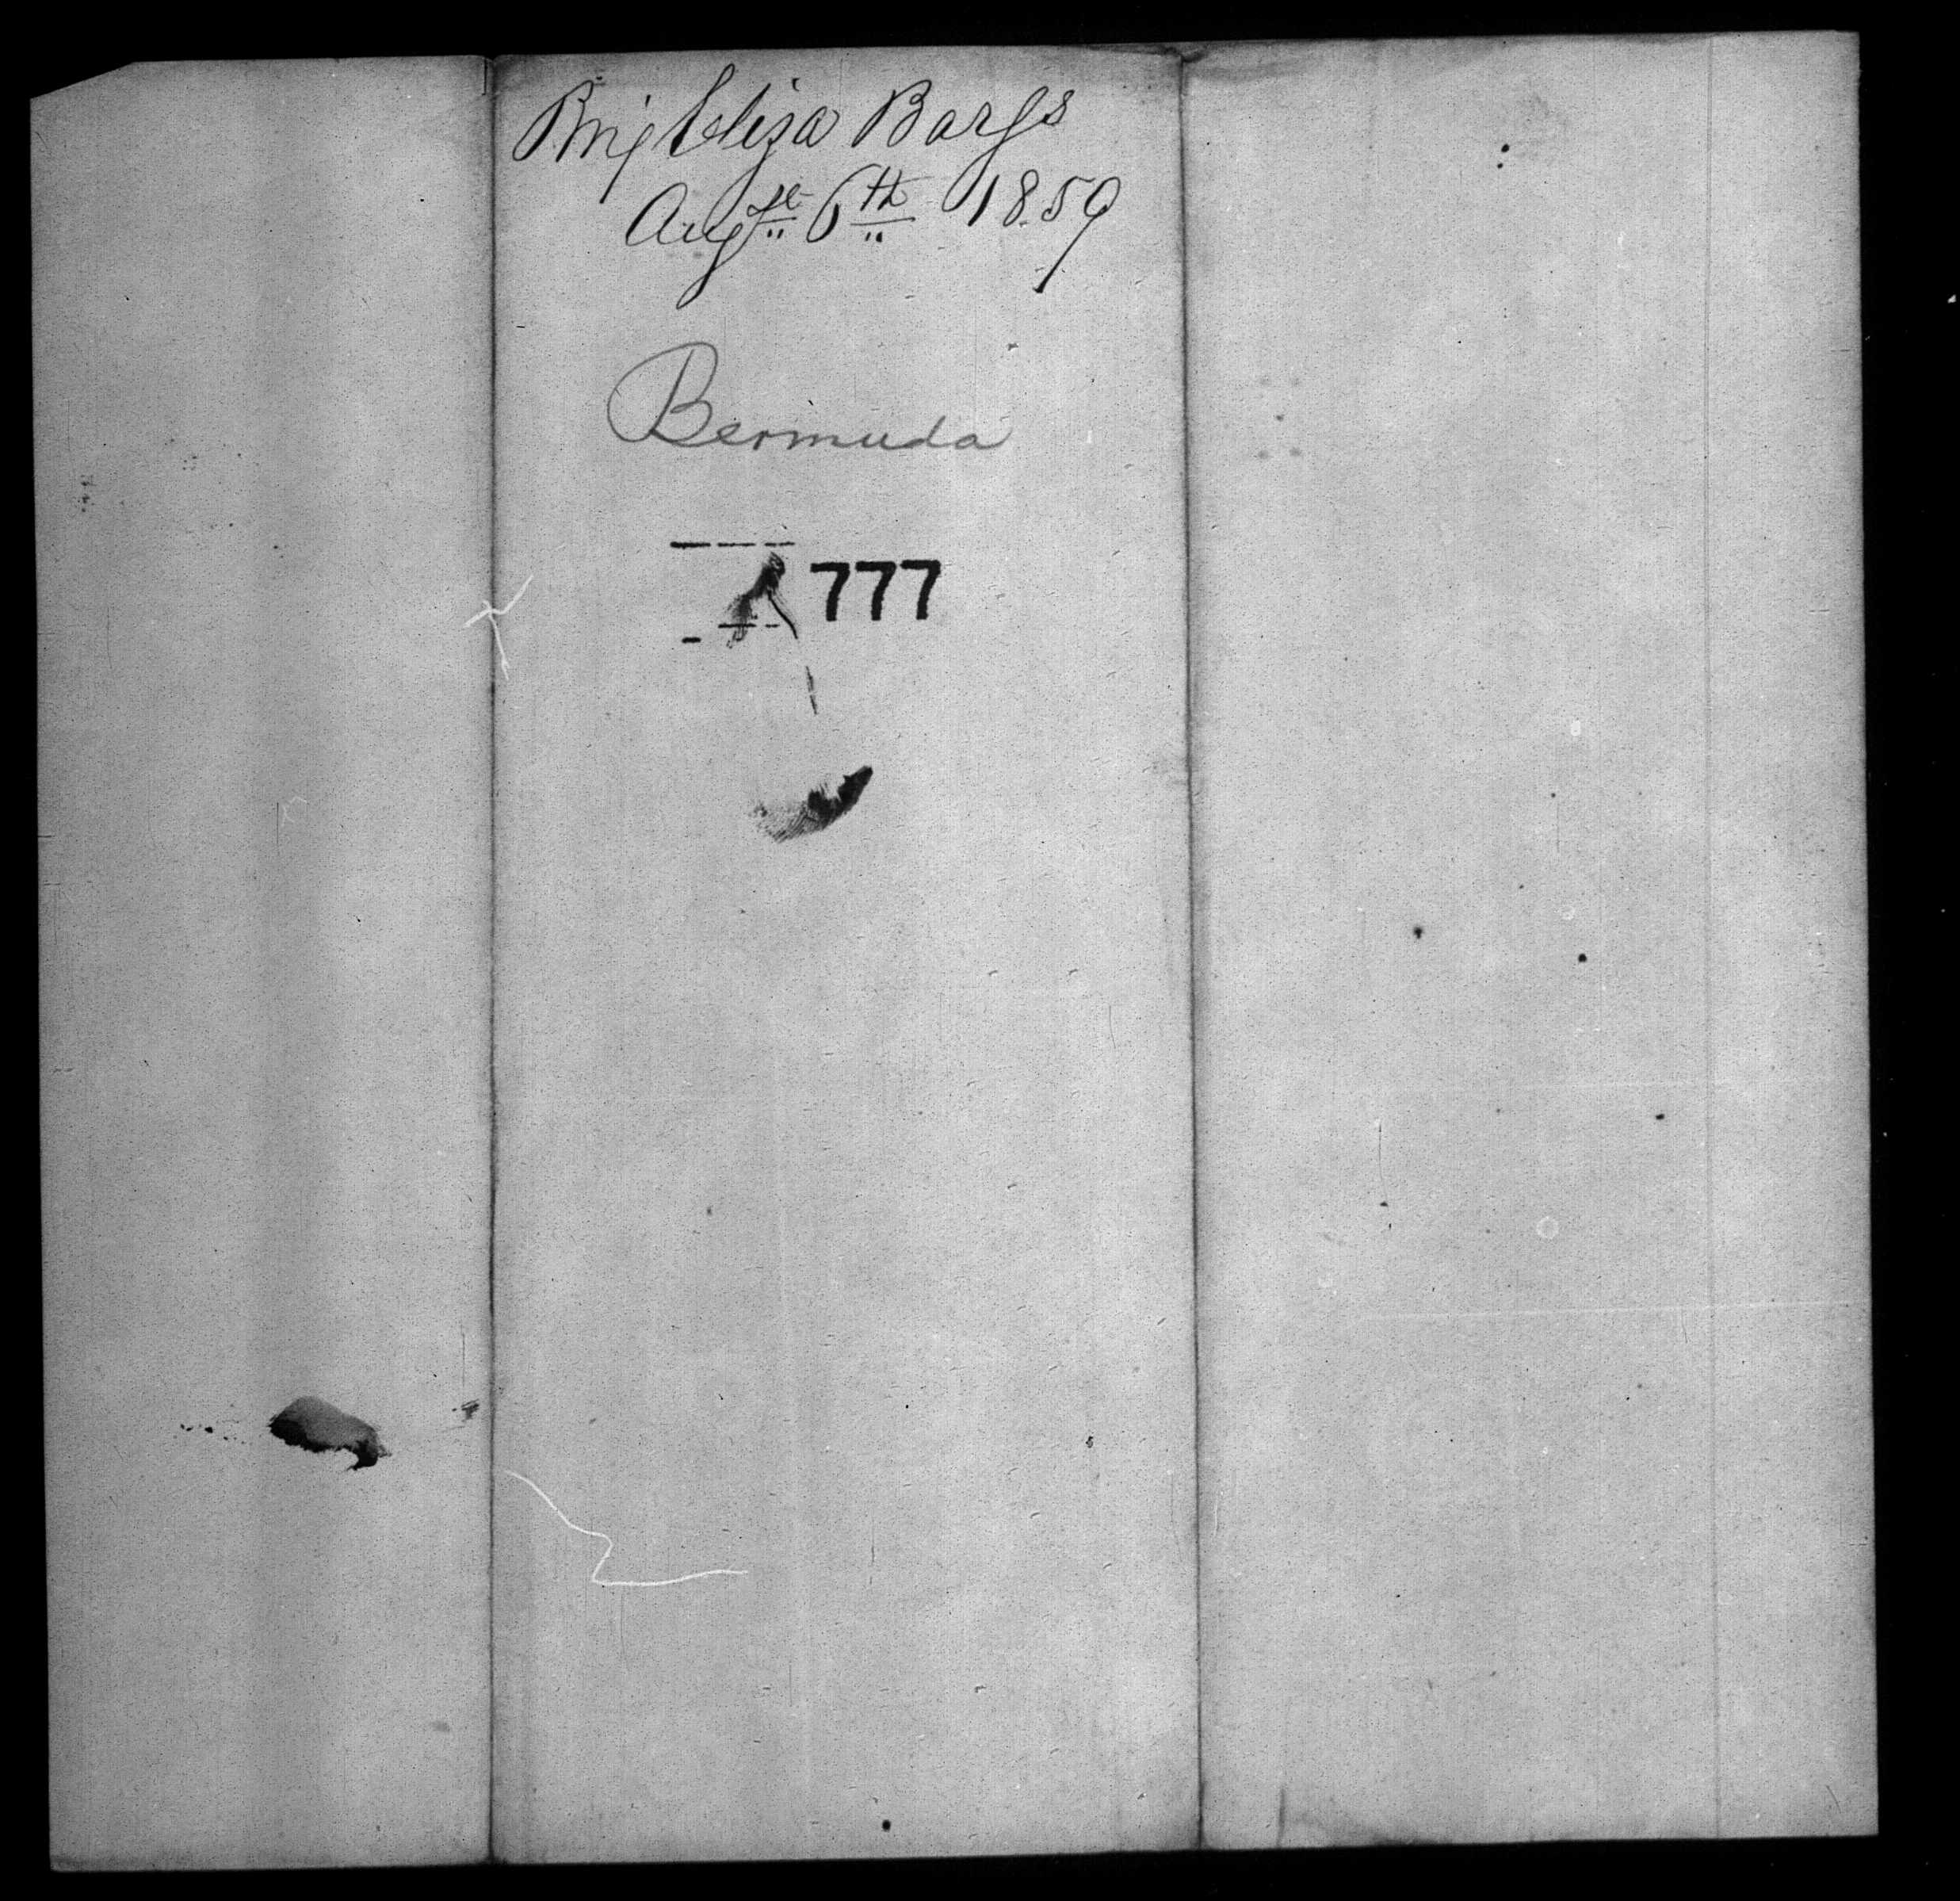 Brig Eliza Barss
Augst 6th 1859
Bermuda
777